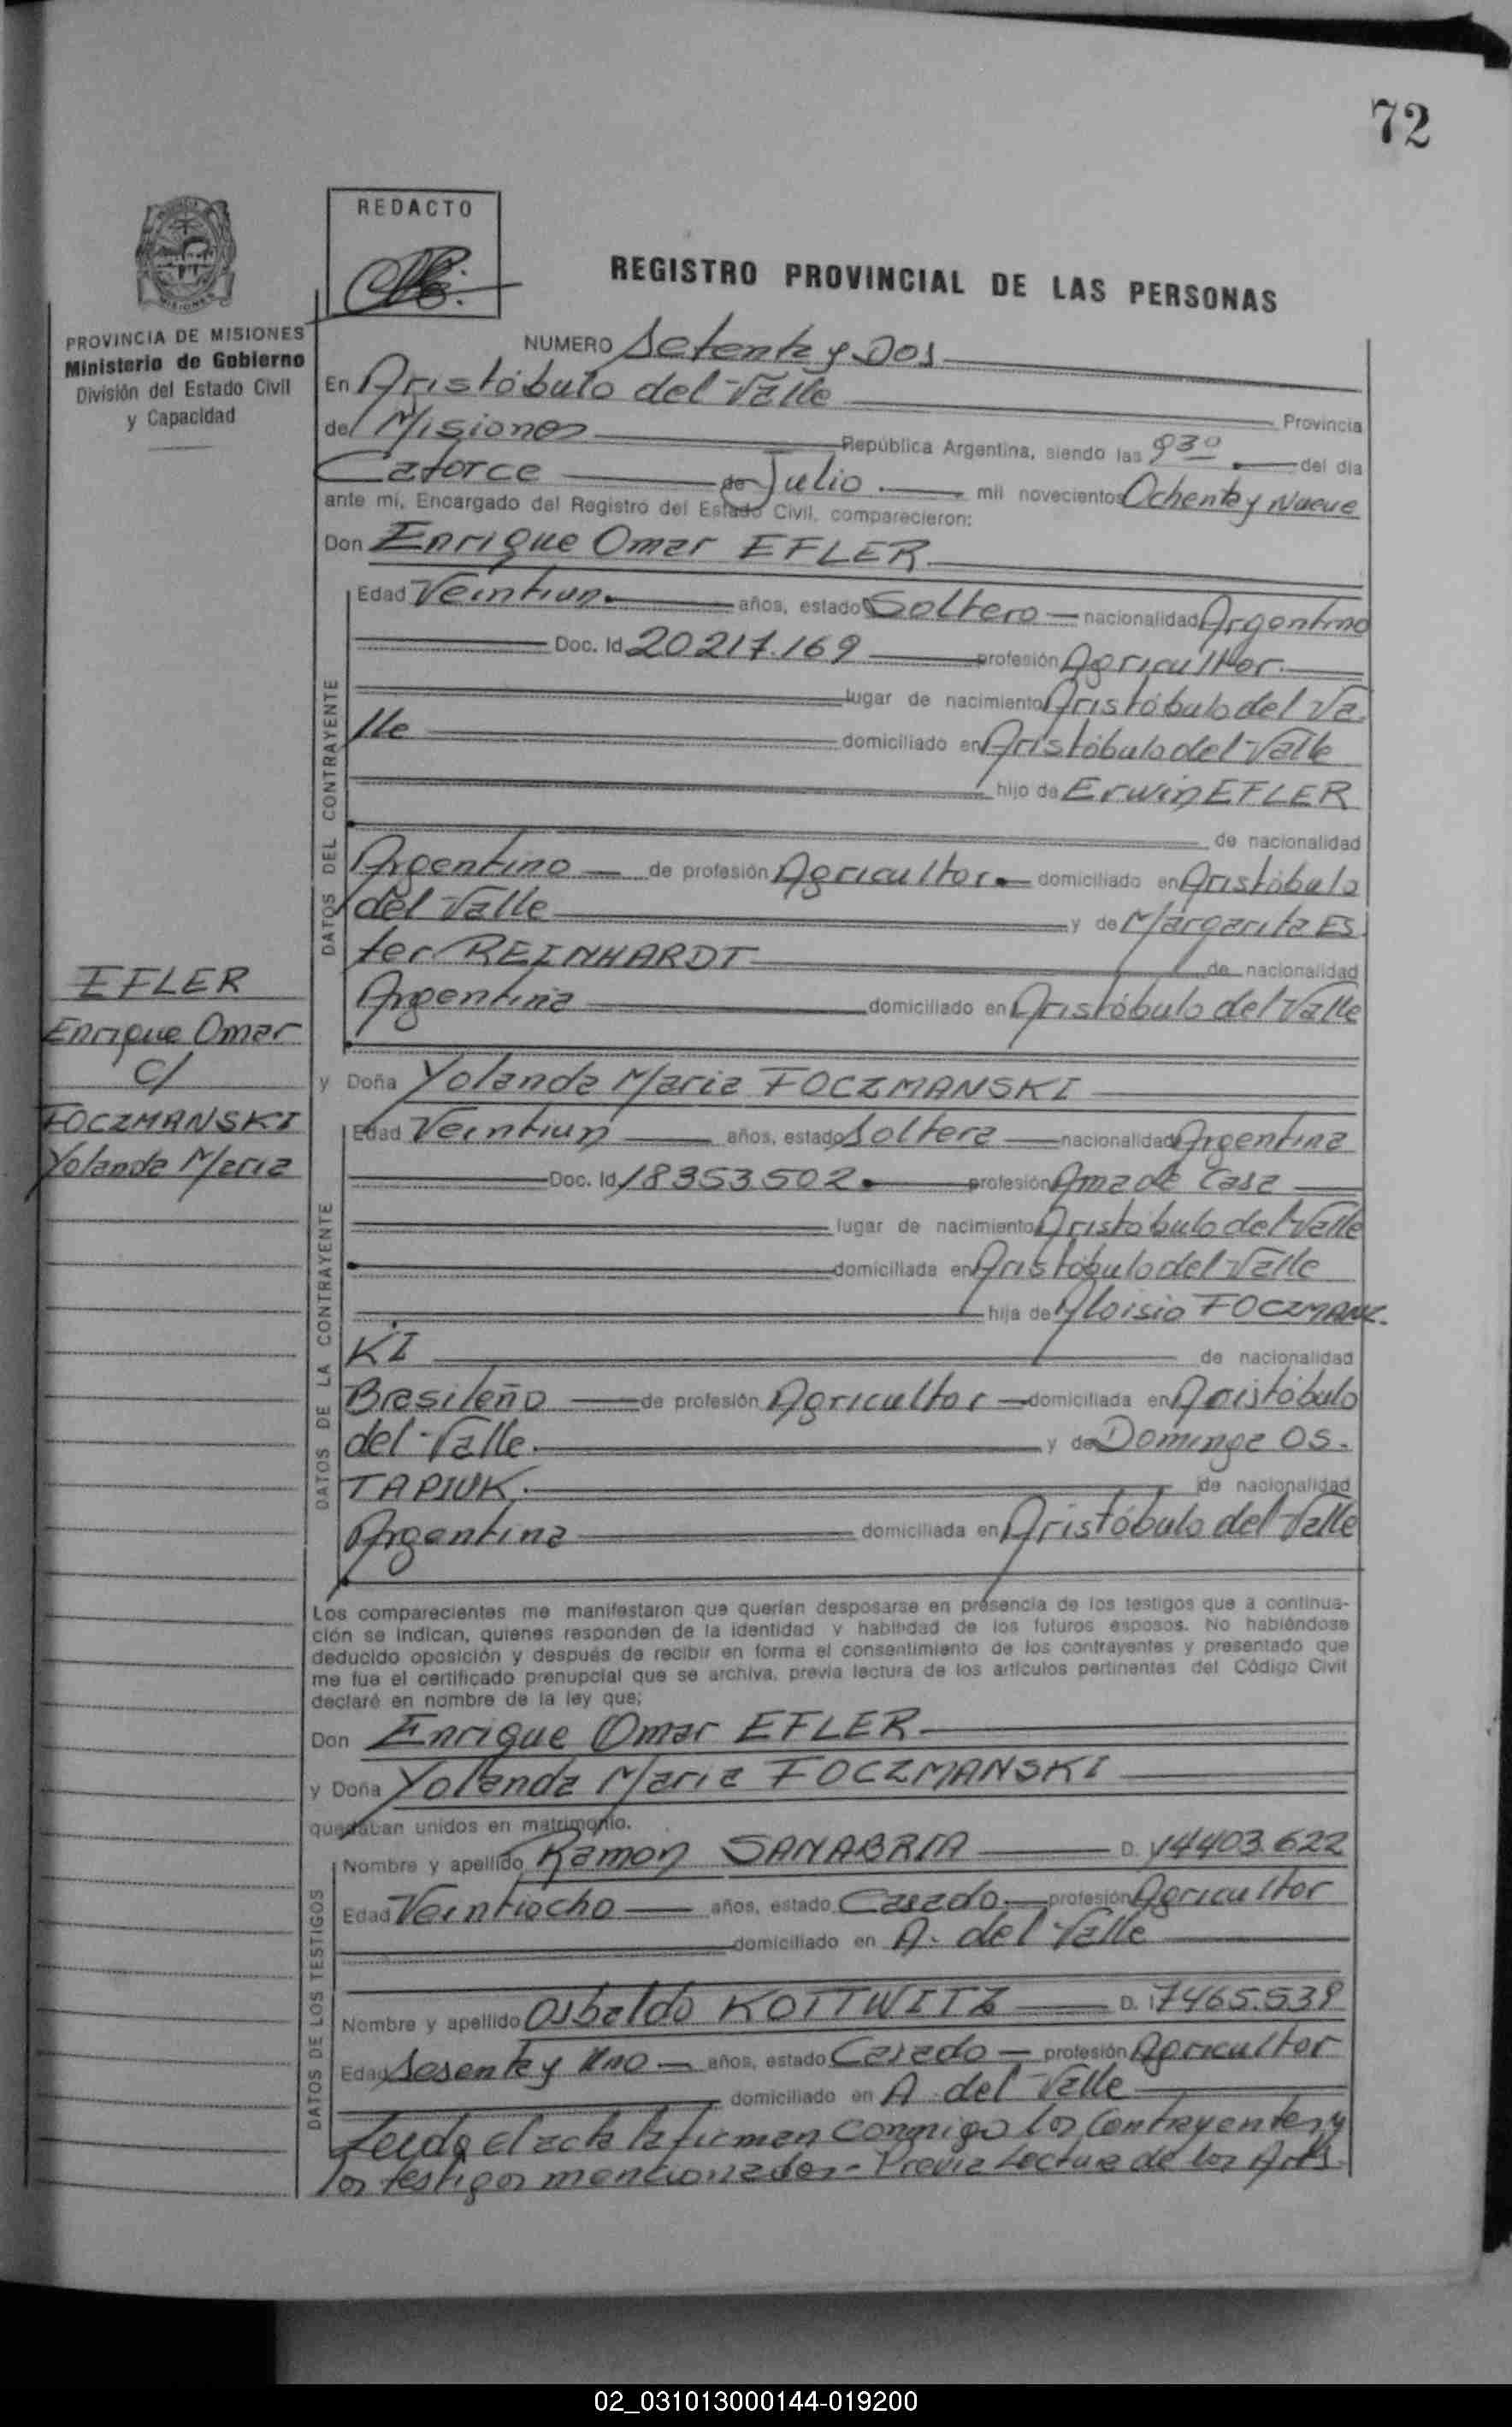 72
REDACTO
REGISTRO PROVINCIAL DE LAS PERSONAS
PROVINCIA DE MISIONES
Ministerio de Gobierno
División del Estado Civil
y Capacidad
NUMERO Setenta y Dos
En Aristóbulo del Valle Provincia
de Misiones República Argentina, siendo las 930 del día
Catorce de Julio mil novecientos Ochenta y Nueve
ante mí, Encargado del Registro del Estado Civil, comparecieron:
Don Enrique Omar EFLER
Edad Veintiun años, estado Soltero nacionalidad Argentino
Doc. Id 20217.169 profesión Agricultor
lugar de nacimiento Aristóbulo del Va
lle domiciliado en Aristóbulo del Valle
hijo de Erwin EFLER
de nacionalidad
Argentino de profesión Agricultor domiciliado en Aristóbulo
del Valle y de Margarita Es
ter REINHARDT de nacionalidad
Argentina domiciliado en Aristóbulo del Valle
DATOS DEL CONTRAYENTE
EFLER
Enrique Omar
C/
FOCZMANSKI
Yolanda Maria
y Doña Yolanda Maria FOCZMANSKI
Edad Veintiun años, estado Soltera nacionalidad Argentina
Doc. Id 18353.502 profesión Ama de Casa
lugar de nacimiento Aristobulo del Valle
domiciliada en Aristóbulo del Valle
hija de Aloisio FOCZMANZ
KI de nacionalidad
Brasileño de profesión Agricultor domiciliada en Aristóbulo
del Valle. y de Dominga OS.
TAPIUK. de nacionalidad
Argentina domiciliada en Aristóbulo del Valle
DATOS DE LA CONTRAYENTE
Los comparecientes me manifestaron que querían desposarse en presencia de los testigos que a continua-
ción se indican, quienes responden de la identidad y habilidad de los futuros esposos. No habiéndose
deducido oposición y después de recibir en forma el consentimiento de los contrayentes y presentado que
me fue el certificado prenupcial que se archiva, previa lectura de los artículos pertinentes del Código Civil
declaré en nombre de la ley que;
Don Enrique Omar EFLER
y Doña Yolanda Maria FOCZMANSKI
quedaban unidos en matrimonio.
Nombre y apellido Ramon SANABRIA D. 14403.622
Edad Veintiocho años, estado Casado profesión Agricultor
domiciliado en A. del Valle
Nombre y apellido Osbaldo KOTTWITZ D. I 7465.539
Edad Sesenta y Uno años, estado Casado profesión Agricultor
domiciliado en A. del Valle
DATOS DE LOS TESTIGOS
Leida el acta la firman conmigo los Contrayentes y
los testigos mencionados - Previa Lectura de los Arts.
02_031013000144-019200